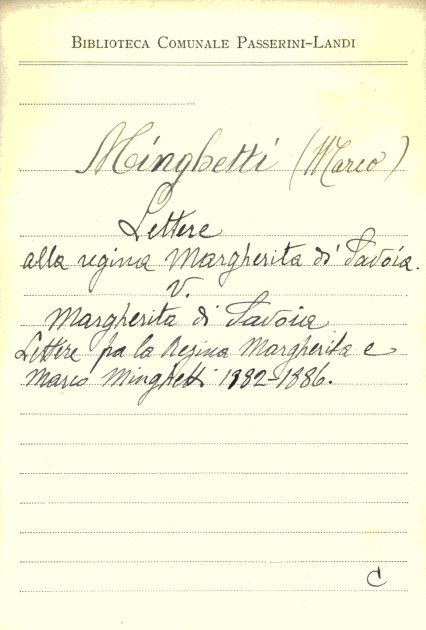 BIBLIOTECA COMUNALE PASSERINI-LANDI
Minghetti (Marco)
Lettere
alla regina Margherita di Savoia.
V.
Margherita di Savoia
Lettere fra la Regina Margherita e
Marco Minghetti 1882-1886.
C